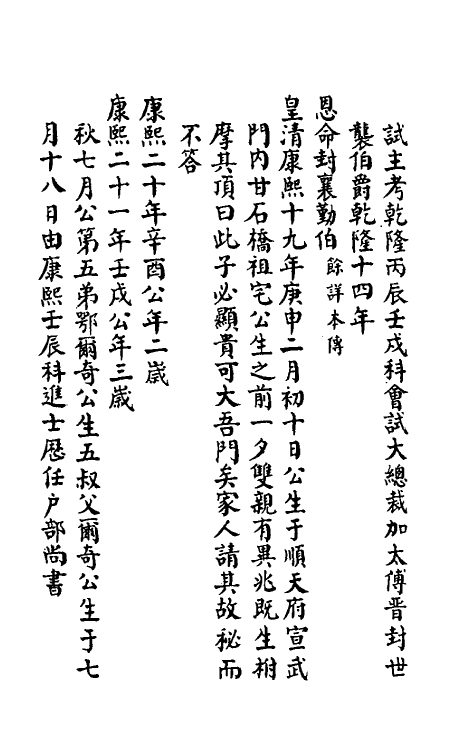 試主考乾隆丙辰壬戌科會試大總裁加太傅晋封世
襲伯爵乾隆十四年
恩命封襄勤伯 餘詳本傳
皇清康熙十九年庚申二月初十日公生于順天府宣武
門内甘石橋祖宅公生之前一夕雙親有異兆既生拊
摩其頂曰此子必顯貴可大吾門矣家人請其故秘而
不答
康熙二十年辛酉公年二歳
康熙二十一年壬戌公年三歳
秋七月公第五弟鄂爾奇公生五叔父爾奇公生于七
月十八日由康熙壬辰科進士歷任户部尚書